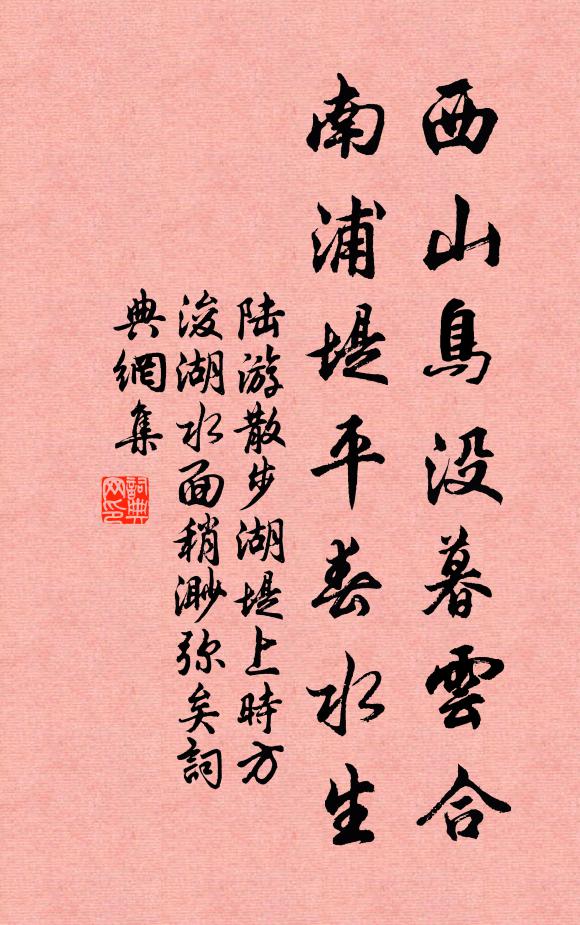 西山鳥没暮雲合
南浦堤平春水生
陆游散步湖堤上時方
浚湖水面稍渺弥矣詞
典網集
詞典
网印